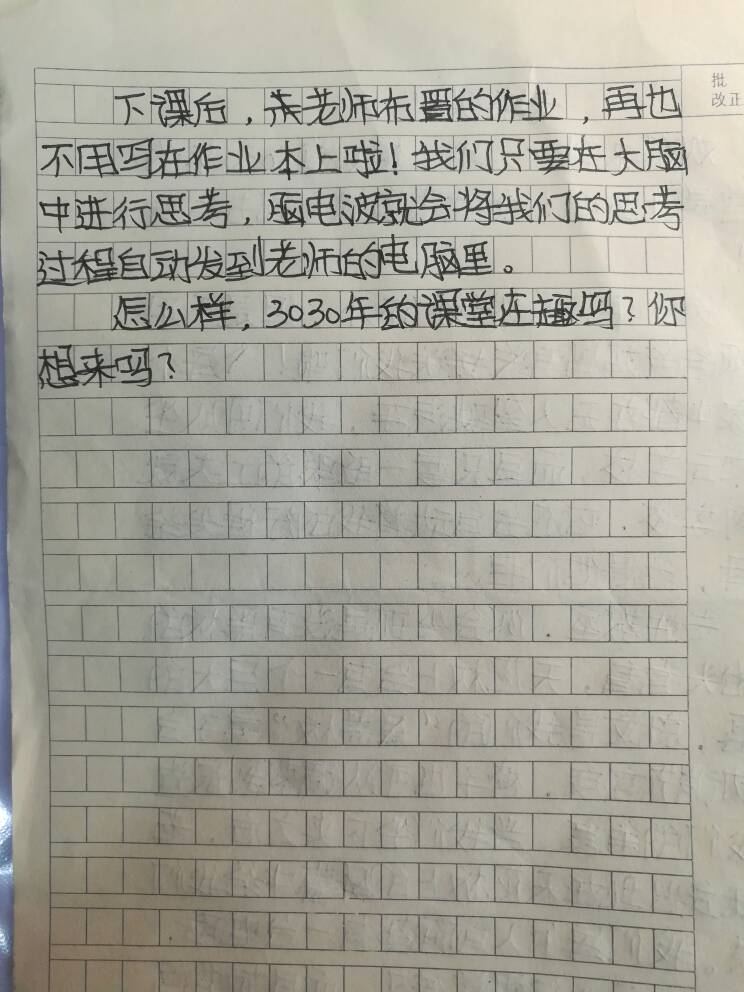 下课后，老师布置的作业，再也
不用写在作业本上啦！我们只要在大脑
中进行思考，脑电波就会将我们的思考
过程自动发到老师的电脑里。
怎么样，3030年的课堂有趣吗？你
想来吗？
批
改正